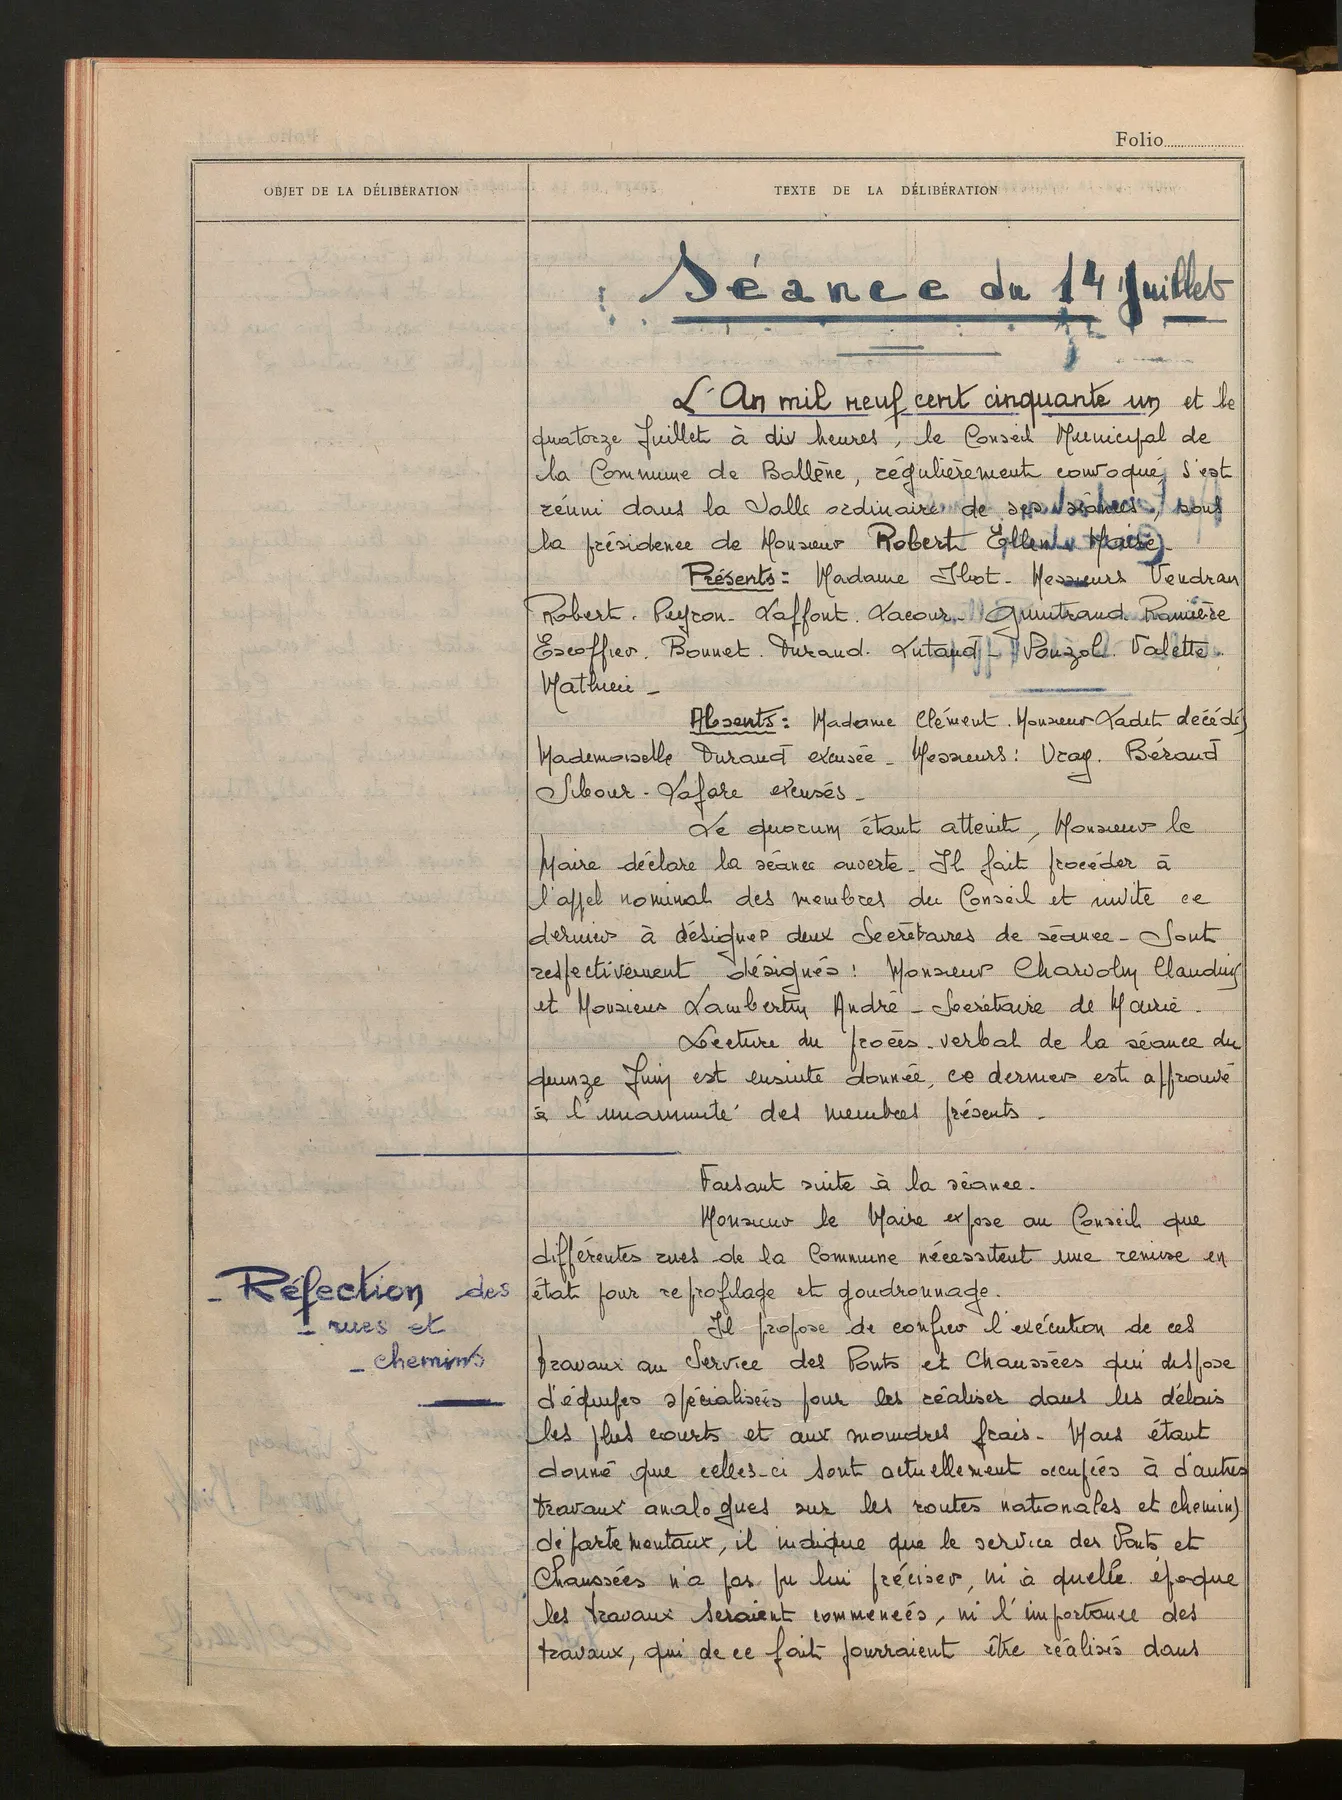 Folio
OBJET DE LA DÉLIBÉRATION
TEXTE DE LA DÉLIBÉRATION
Séance du 14 Juillet
L'An mil neuf cent cinquante un et le
quatorze Juillet à dix heures, le Conseil Municipal de
la Commune de Bollène, régulièrement convoqué, s'est
réuni dans la Salle ordinaire de ses séances, sous
la présidence de Monsieur Robert Ellen Maire.
Présents: Madame Ibot. Messieurs Vendran
Robert. Peyron. Laffont. Lacour. Guintrand. Ramière
Escoffier. Bonnet. Durand. Lutaud. Pouzol. Valette.
Mathieu _
Absents: Madame Clément. Monsieur Ladet décédés
Mademoiselle Durand excusée _ Messieurs: Vray. Béraud
Sibour. Lafare excusés _
Le quorum étant atteint, Monsieur le
Maire déclare la séance ouverte _ Il fait procéder à
l'appel nominal des membres du Conseil et invite ce
dernier à désigner deux Secrétaires de séance _ Sont
respectivement désignés: Monsieur Charvolin Claudius
et Monsieur Lambertin André _ Secrétaire de Mairie.
Lecture du procès-verbal de la séance du
quinze Juin est ensuite donnée, ce dernier est approuvé
à l'unanimité des membres présents _
Faisant suite à la séance.
Monsieur le Maire expose au Conseil que
différentes rues de la Commune nécessitent une remise en
état pour reprofilage et goudronnage.
_ Réfection des
_ rues et
_ chemins
Il propose de confier l'exécution de ces
travaux au Service des Ponts et Chaussées qui dispose
d'équipes spécialisées pour les réaliser dans les délais
les plus courts et aux moindres frais _ Mais étant
donné que celles-ci sont actuellement occupées à d'autres
travaux analogues sur les routes nationales et chemins
départementaux, il indique que le service des Ponts et
Chaussées n'a pas pu lui préciser, ni à quelle époque
les travaux seraient commencés, ni l'importance des
travaux, qui de ce fait pourraient être réalisés dans